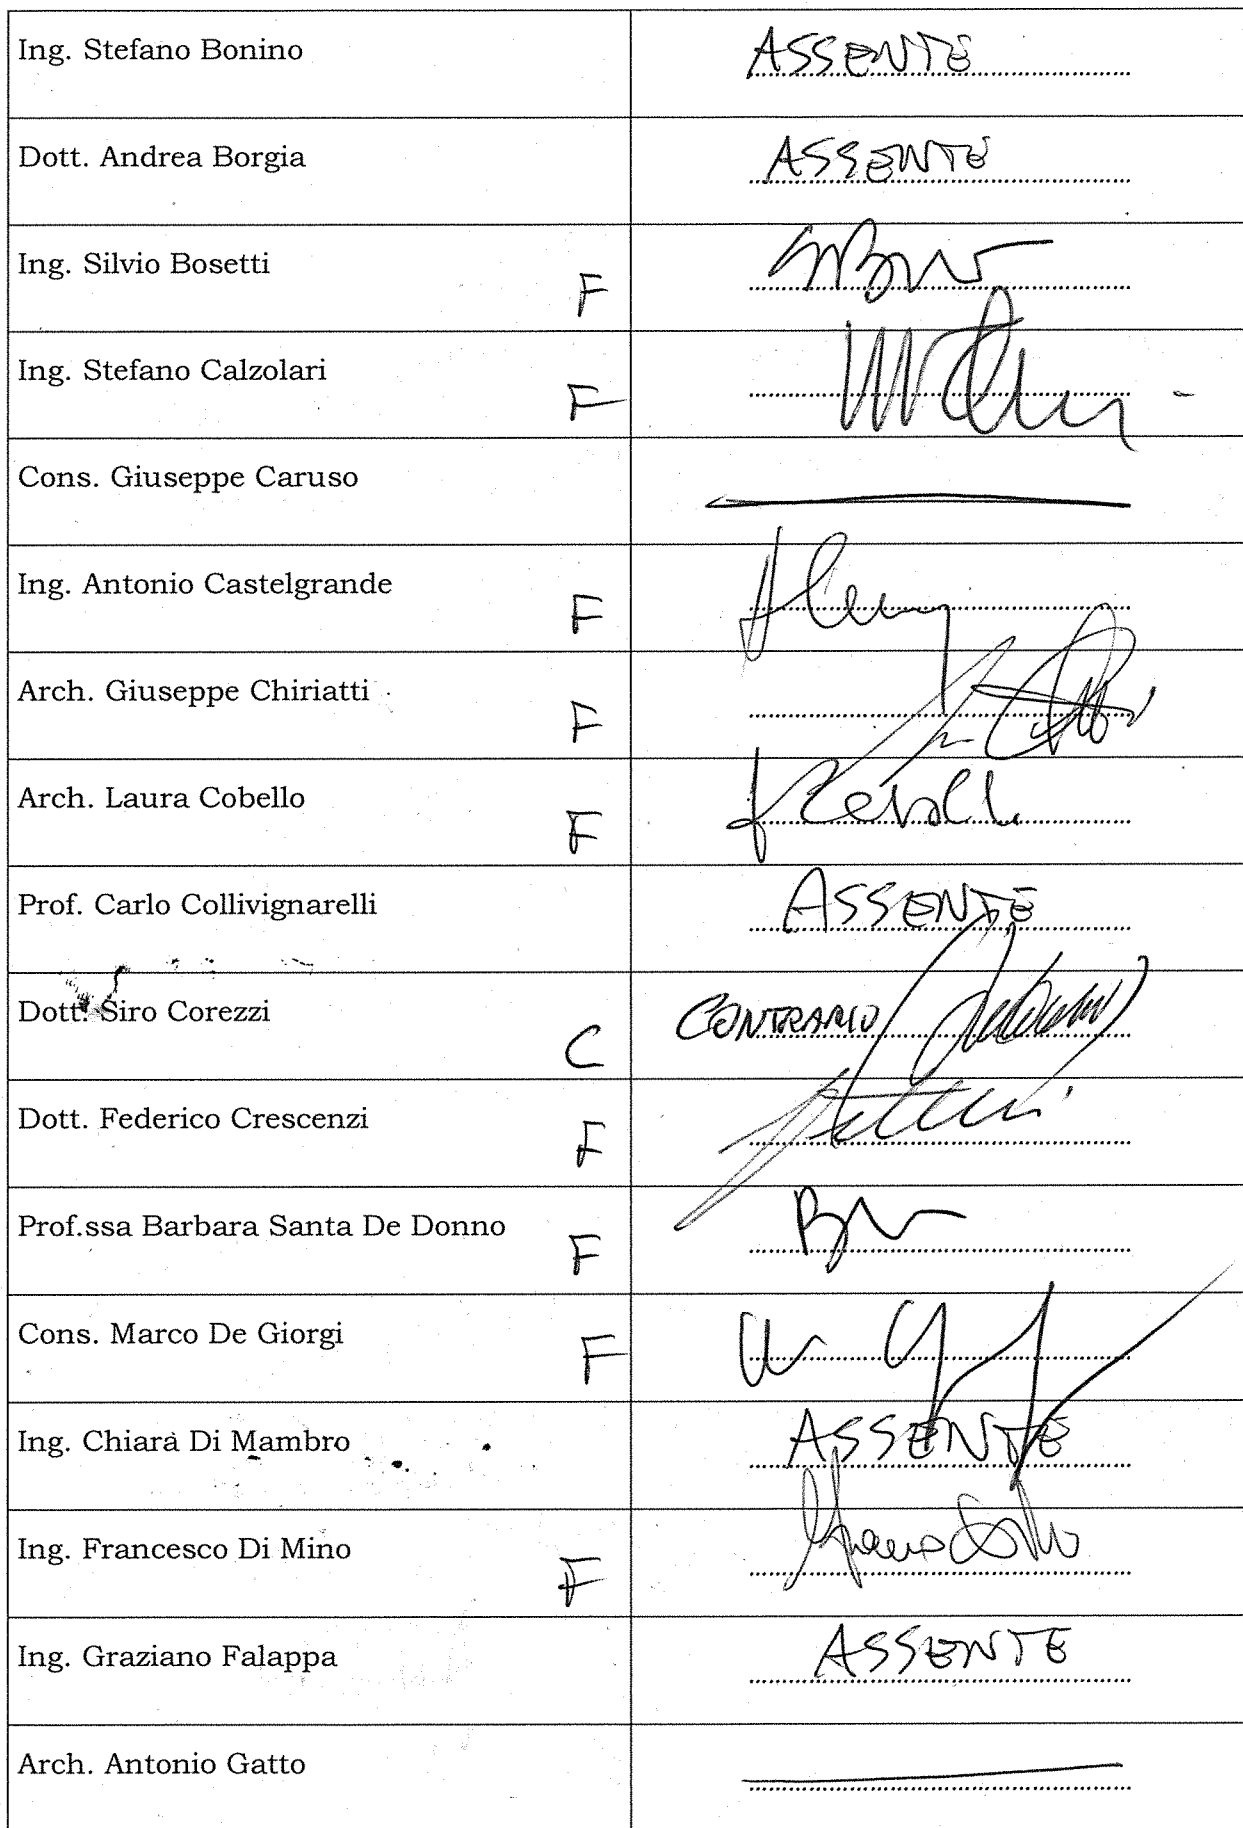 Ing. Stefano Bonino ASSENTE
Dott. Andrea Borgia ASSENTE
Ing. Silvio Bosetti F
Ing. Stefano Calzolari F
Cons. Giuseppe Caruso
Ing. Antonio Castelgrande F
Arch. Giuseppe Chiriatti F
Arch. Laura Cobello F
Prof. Carlo Collivignarelli ASSENTE
Dott. Siro Corezzi C CONTRARIO
Dott. Federico Crescenzi F
Prof.ssa Barbara Santa De Donno F
Cons. Marco De Giorgi F
Ing. Chiara Di Mambro ASSENTE
Ing. Francesco Di Mino F
Ing. Graziano Falappa ASSENTE
Arch. Antonio Gatto